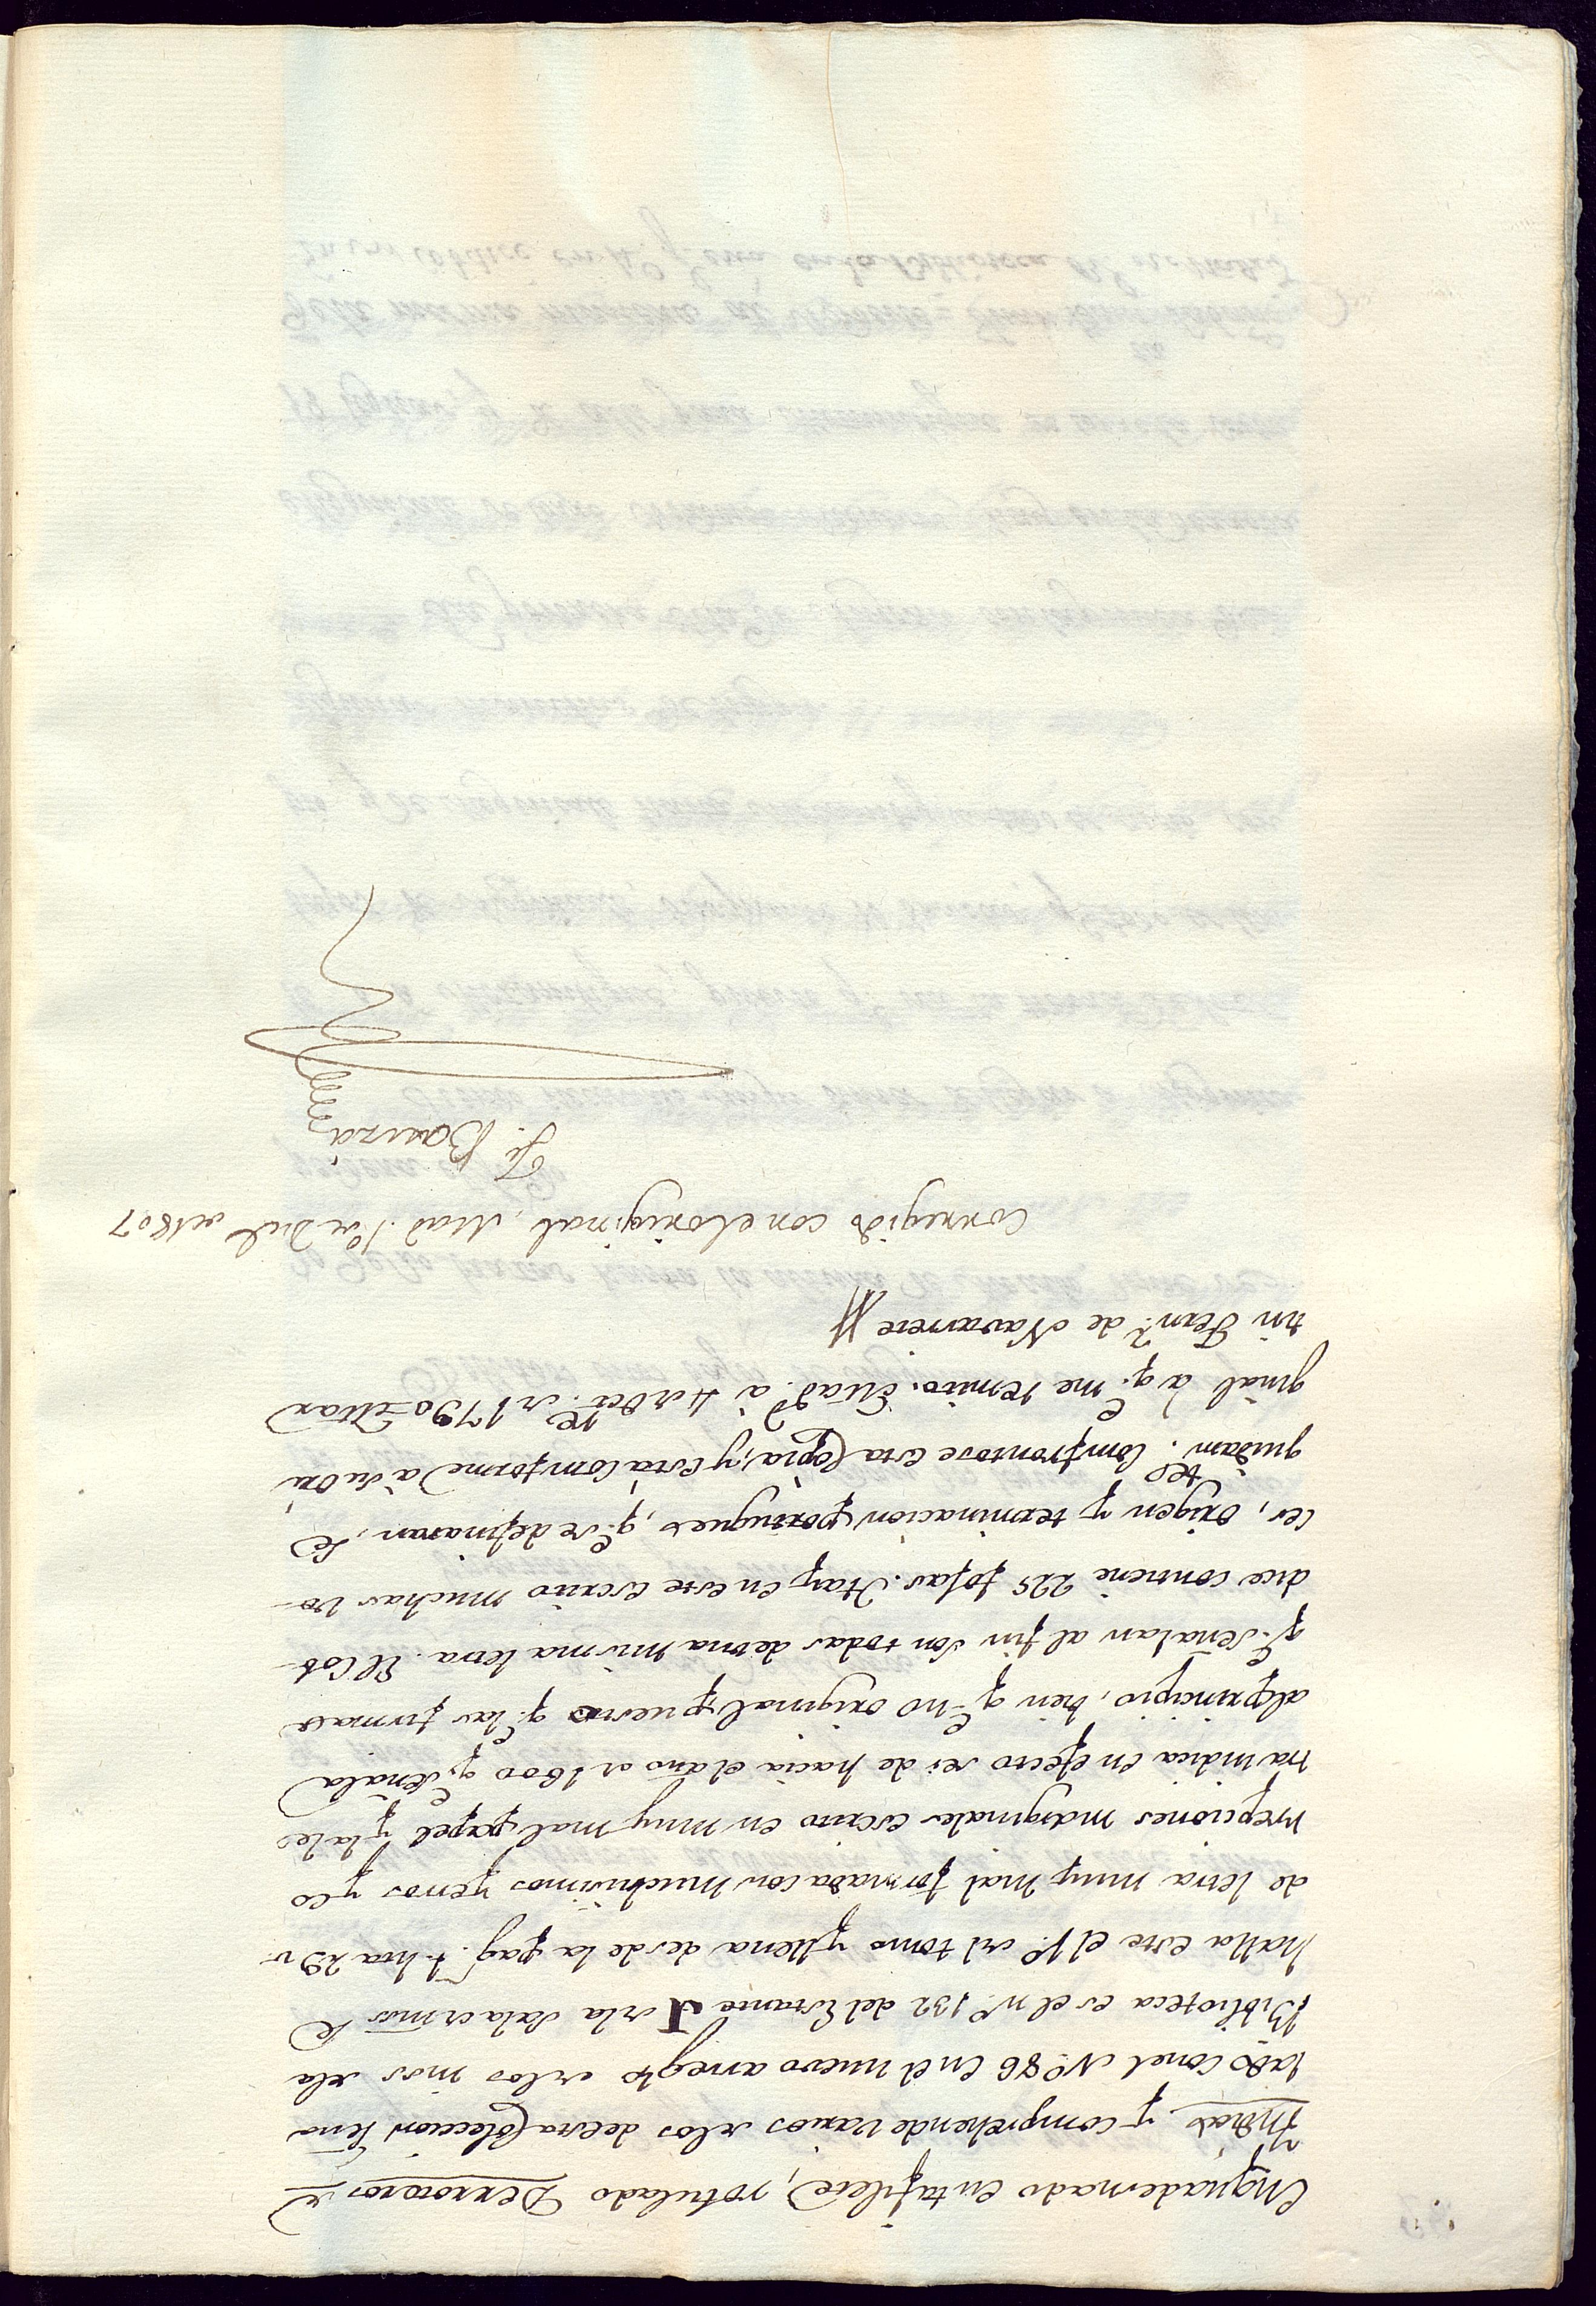 Enquadernado en tafilete, rotulado Derroteros de
Indias y comprehende varios de los de esta Coleccion seña
lado con el Nº 86 en el nuevo arreglo de los mss de la
Biblioteca es el nº 132 del Estante J de la Sala de mss se
halla este el 1º del tomo y llena desde la pag. 1 hta 29 v.
de letra muy mal formada con muchisimos yerros y co
rrepciones marginales escrito en muy mal papel y la le
tra indica en efecto ser de hacia el año de 1600 q.e señala
al principio, bien q.e no original puesto q.e las firmas
q.e señalan al fin son todas de una misma letra. El Cod-
dice contiene 225 fojas. Hay en este escrito muchas vo-
ces, origen y terminacion portugues, q.e se
quidam. Confrontose esta Copia, y está Conforme à su ori
ginal à q.e me remito. Mad.d à 4 de Oct.re de 1790 = Mar
tin Fern.z de Navarrete
Corregido con el original, Mad. 1º de Dic.e de 1807
F. Bauzá